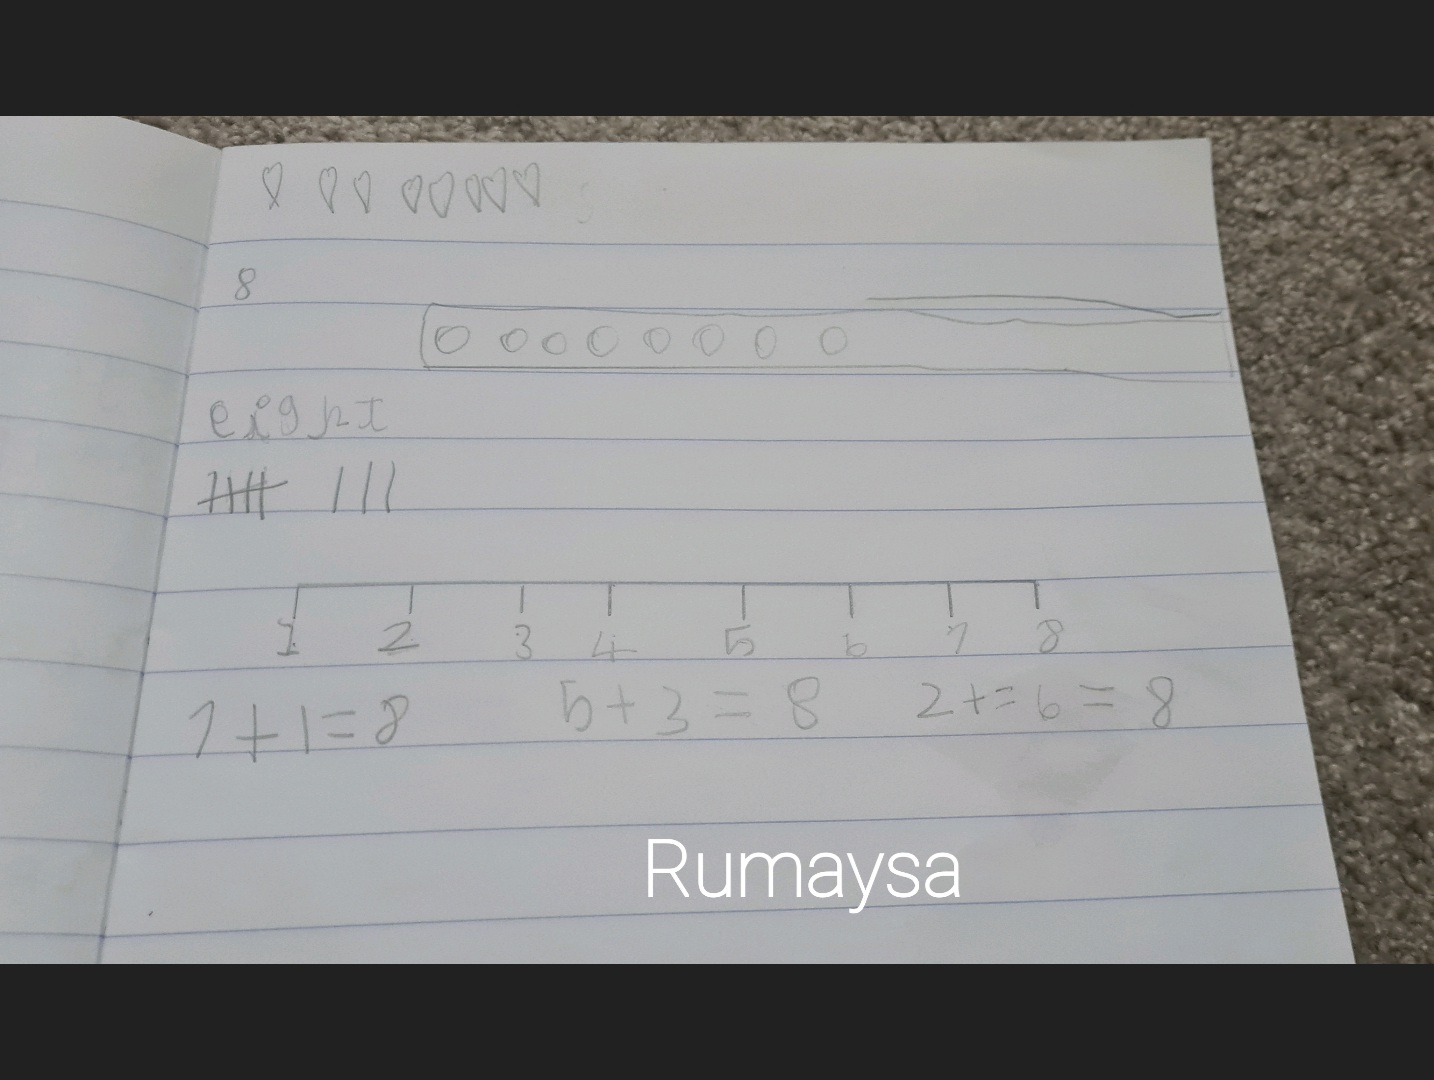 8
eight
1 2 3 4 5 6 7 8
7+1=8 5+3=8 2+=6=8
Rumaysa